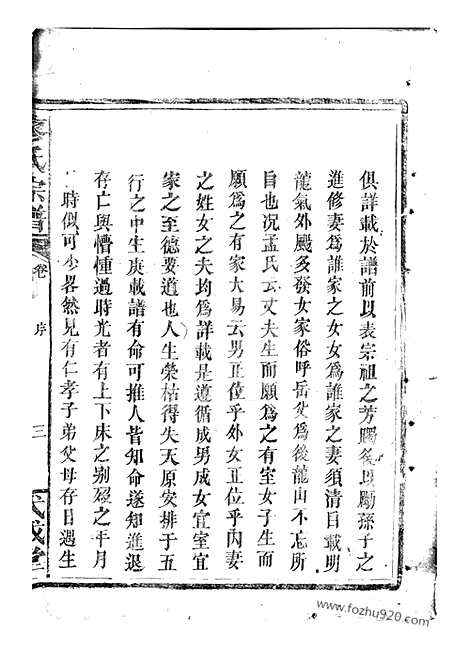 俱詳載於譜前以表宗祖之芳躅後以勵孫子之
進修妻為誰家之女女為誰家之妻須清目載明
龍氣外颺多發女家俗呼岳丈為後龍山不忘所
自也况孟氏云丈夫生而願為之有室女子生而
願為之有家大易云男正位乎外女正位乎内妻
之姓女之夫均為詳載是遵循成男成女宜室宜
家之至德要道也人生榮枯得失天原安排于五
行之中生庚載譜有命可推人皆知命遂知進退
存亡與懵懂過時光者有上下床之别殁之年月
日時似可少畧然見有仁孝子弟父母存日遇生
氏宗譜
卷
序
三
武威堂
www.fozhu920.com